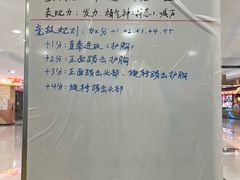 表现力：发力、精气神、神态、喊声
竞技规则：加分 +1 +2 +1 +4 +5
+1分：直拳进攻（护胸）
+2分：正面踢击护胸
+3分：正面踢击头部、旋转踢击护胸
+4分：旋转踢击头部